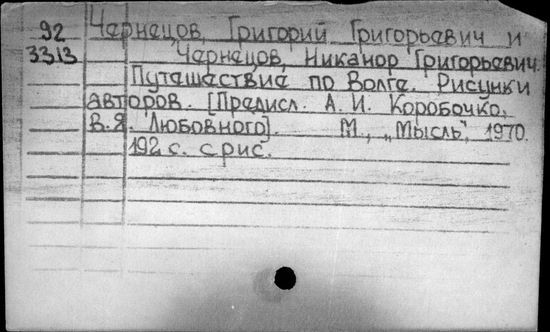 92 Чернецов, Григорий Григорьевич и
3313 Чернецов, Никанор Григорьевич.
Путешествие по Волге. Рисунки
авторов. [Предисл. А. И. Коробочко,
В. Я. Любовного]. М., „Мысль", 1970.
192 с. с рис.